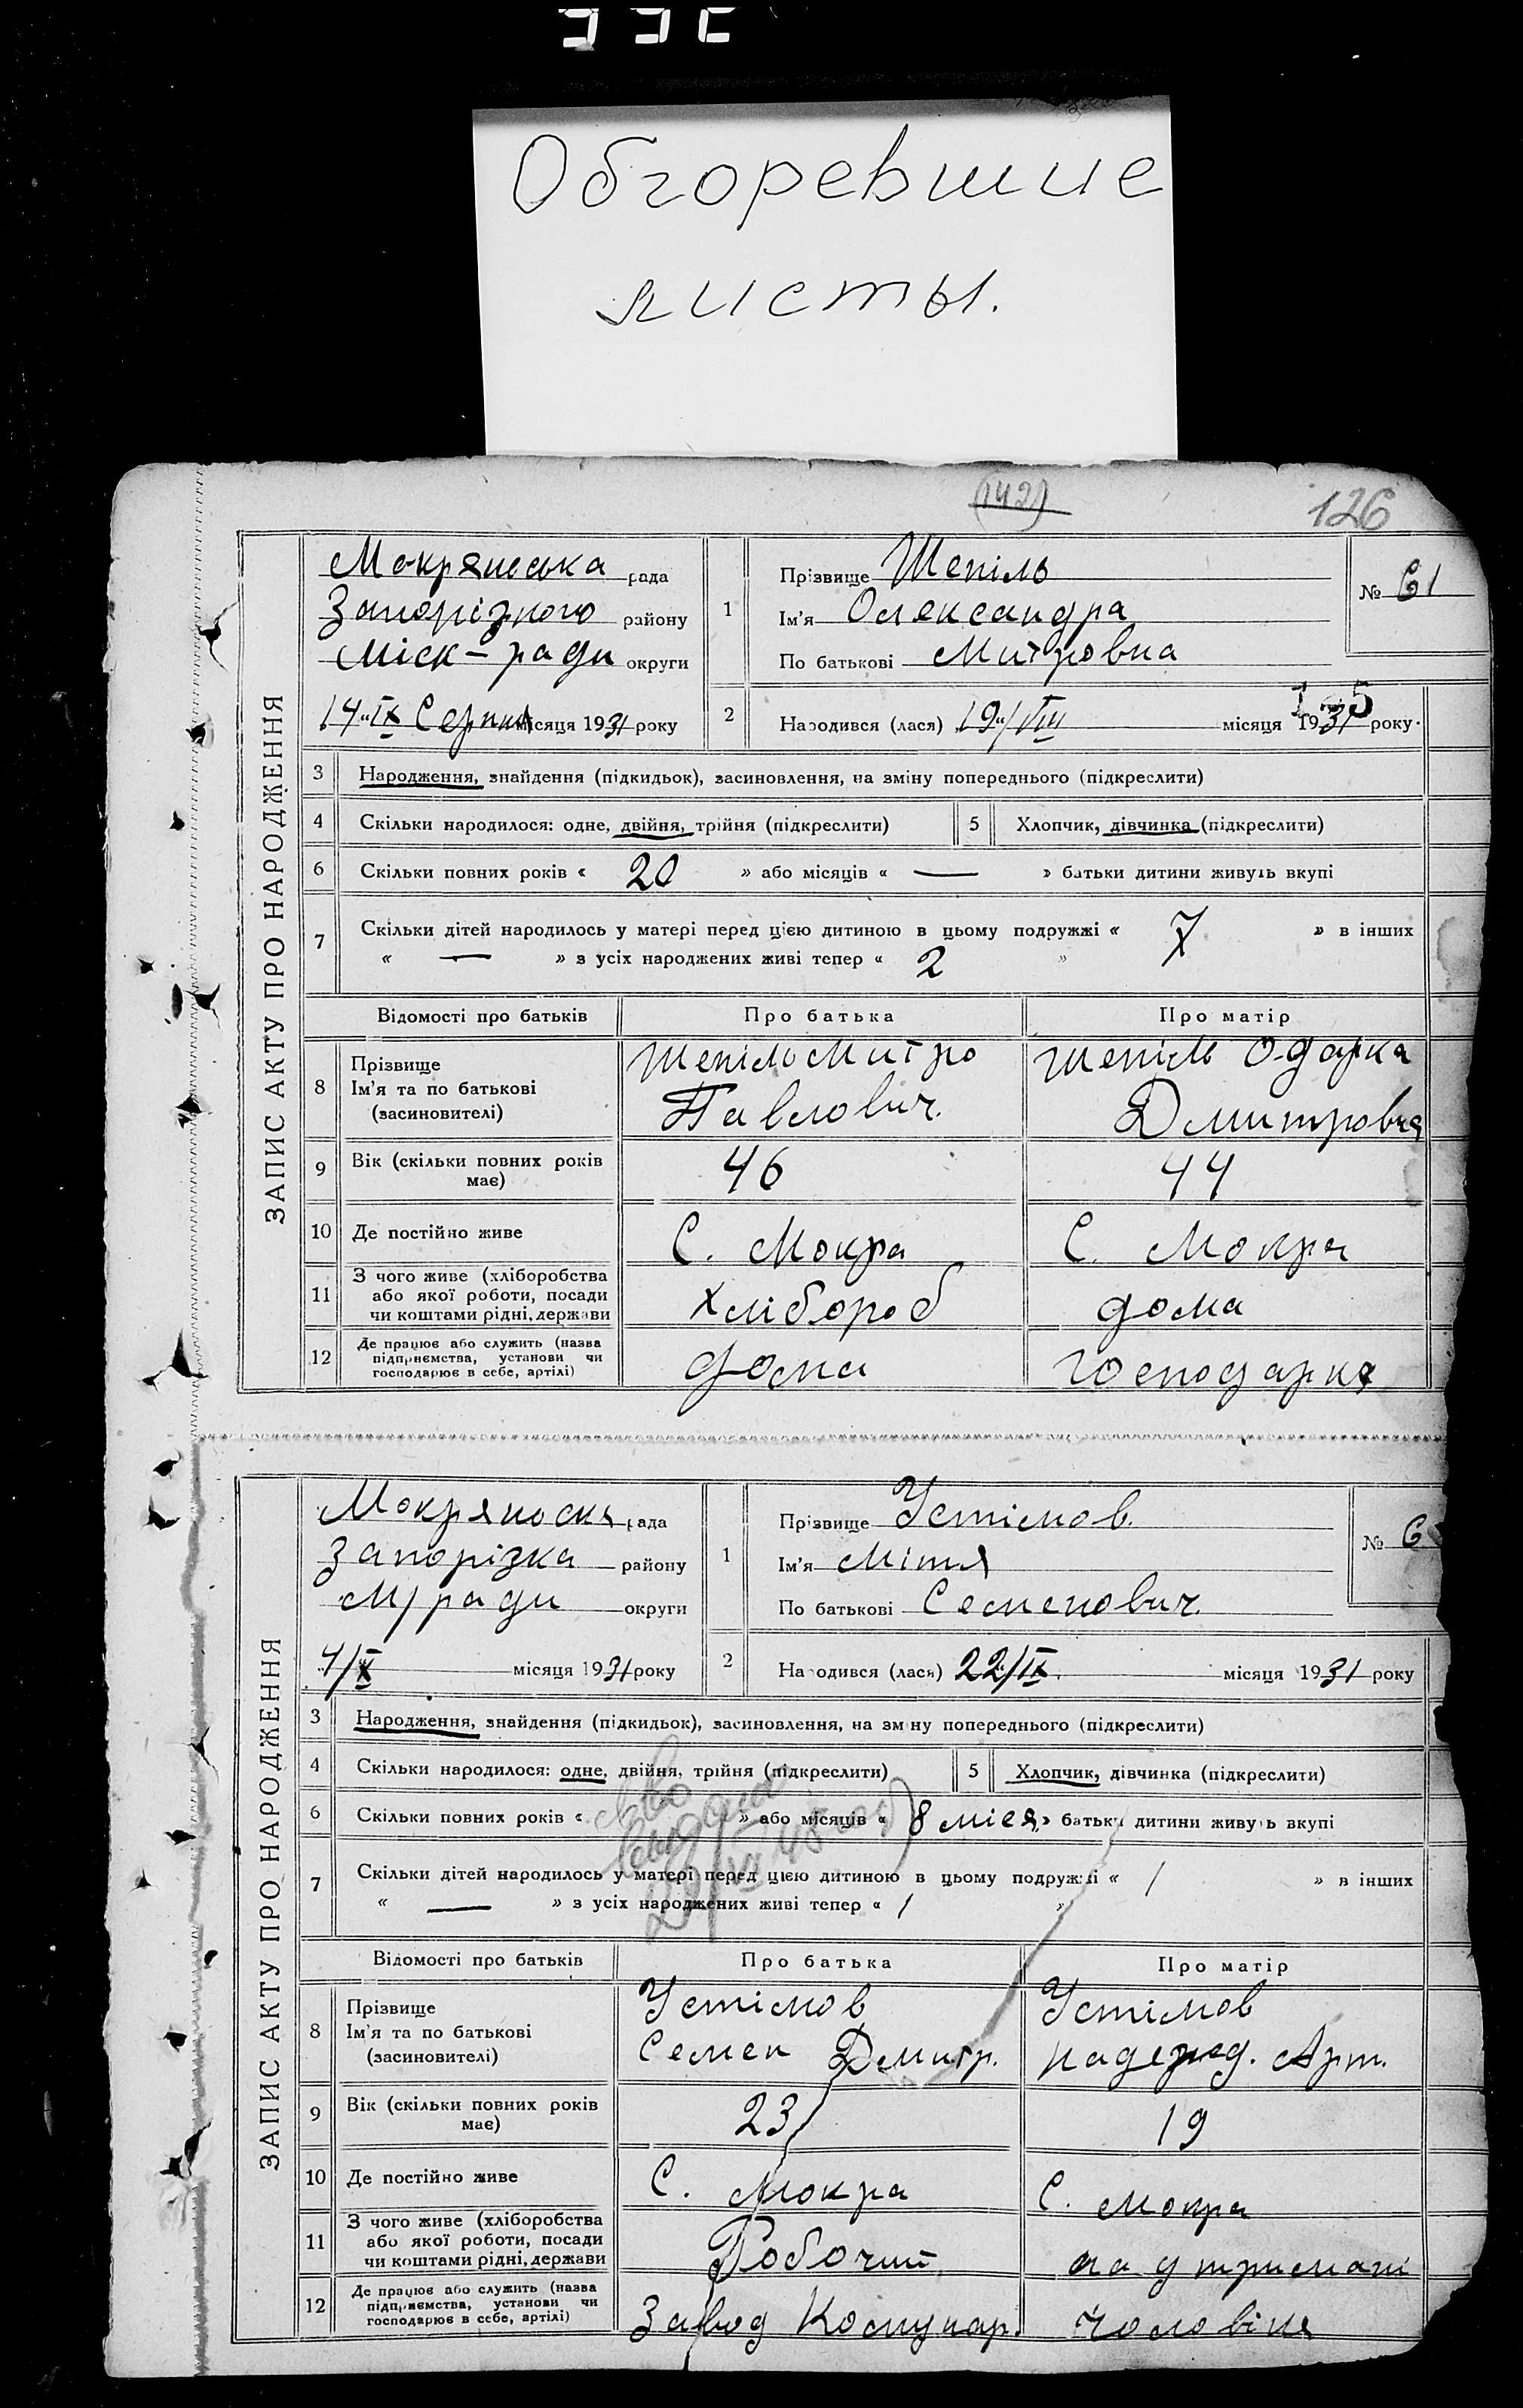 Обгоревшие
листы.
(142)
126
ЗАПИС АКТУ ПРО НАРОДЖЕННЯ
Мокрянська рада
Запорізного району
Міск-ради округи
14"IX Серпня місяця 1931 року
1
Прізвище Шепіль
Ім'я Олександра
По батькові Митровна
№ 61
2
Народився (лася) 19"/VIII місяця 1931 року.
3 Народження, знайдення (підкидьок), засиновлення, на зміну попереднього (підкреслити)
4 Скільки народилося: одне, двійня, трійня (підкреслити)
5 Хлопчик, дівчинка (підкреслити)
6 Скільки повних років « 20 » або місяців « — » батьки дитини живуть вкупі
7 Скільки дітей народилось у матері перед цією дитиною в цьому подружжі « 7 » в інших
« — » з усіх народжених живі тепер « 2 »
Відомості про батьків Про батька Про матір
8 Прізвище
Ім'я та по батькові
(засиновителі)
Шепіль Митро
Павлович.
Шепіль Одарка
Дмитровна
9 Вік (скільки повних років
має)
46
44
10 Де постійно живе С. Мокра С. Мокра
11 З чого живе (хліборобства
або якої роботи, посади
чи коштами рідні, держави
хлібороб
дома
12 Де працює або служить (назва
підприємства, установи чи
господарює в себе, артілі)
дома
господарка
ЗАПИС АКТУ ПРО НАРОДЖЕННЯ
Мокряноска рада
Запорізка району
М/ради округи
4/X місяця 1931 року
1
Прізвище Устімов.
Ім'я Мітя
По батькові Семенович.
№ 6
2
Народився (лася) 22/IX. місяця 1931 року
3 Народження, знайдення (підкидьок), засиновлення, на зміну попереднього (підкреслити)
4 Скільки народилося: одне, двійня, трійня (підкреслити)
5 Хлопчик, дівчинка (підкреслити)
6 Скільки повних років « » або місяців « 8 місяц » батьки дитини живуть вкупі
7 Скільки дітей народилось у матері перед цією дитиною в цьому подружжі « 1 » в інших
« — » з усіх народжених живі тепер « 1 »
Відомості про батьків Про батька Про матір
8 Прізвище
Ім'я та по батькові
(засиновителі)
Устімов
Семен Дмитр.
Устімов
Надежд. Арт.
9 Вік (скільки повних років
має)
23
19
10 Де постійно живе С. Мокра С. Мокра
11 З чого живе (хліборобства
або якої роботи, посади
чи коштами рідні, держави
Робочий
на утримані
12 Де працює або служить (назва
підприємства, установи чи
господарює в себе, артілі)
Завод Комунар.
чоловіка